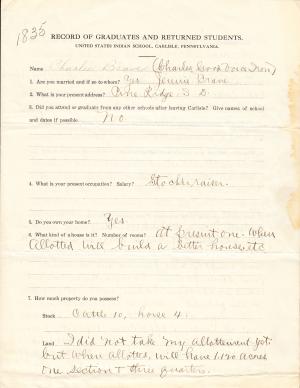 1835
RECORD OF GRADUATES AND RETURNED STUDENTS.
UNITED STATES INDIAN SCHOOL, CARLISLE, PENNSYLVANIA.
Name Charles Brave (Charles Good Voice Iron)
1. Are you married and if so to whom? Yes Jennie Brave
2. What is your present address? Pine Ridge, S. D.
3. Did you attend or graduate from any other schools after leaving Carlisle? Give names of school
and dates if possible. No
4. What is your present occupation? Salary? Stock raiser.
5. Do you own your home? Yes
6. What kind of a house is it? Number of rooms? At present one. When
allotted will build a better house, etc
7. How much property do you possess?
Stock Cattle 10, horse 4.
Land I did not take my allottement yet
but when allotted, will have 1120 acres
one section & three quarters.